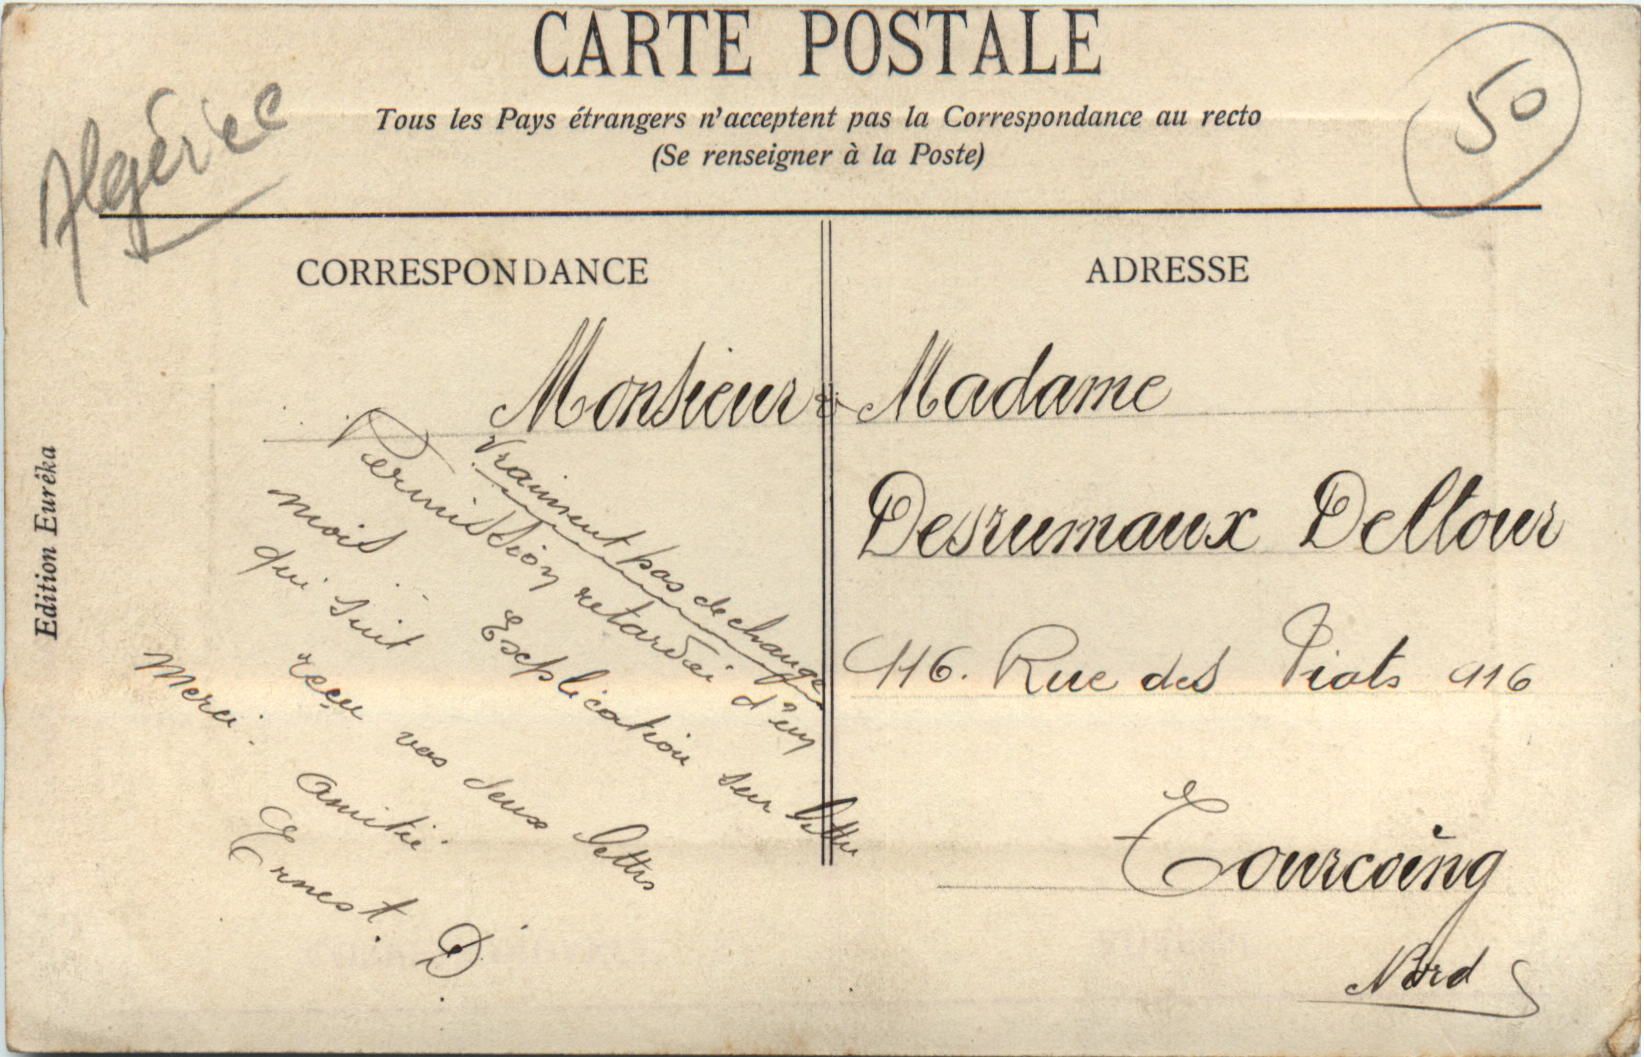 CARTE POSTALE
Tous les Pays étrangers n'acceptent pas la Correspondance au recto
(Se renseigner à la Poste)
Algérie
50
CORRESPONDANCE
ADRESSE
Edition Eurêka
Monsieur & Madame
Desrumaux Deltour
116. Rue des Piats 116
Tourcoing
Nord
Vraiment pas de change
Permission retardéi d'un
mois Explication sur lettre
qui suit
reçu vos deux lettres
Merci.
amitié
Ernest. D.